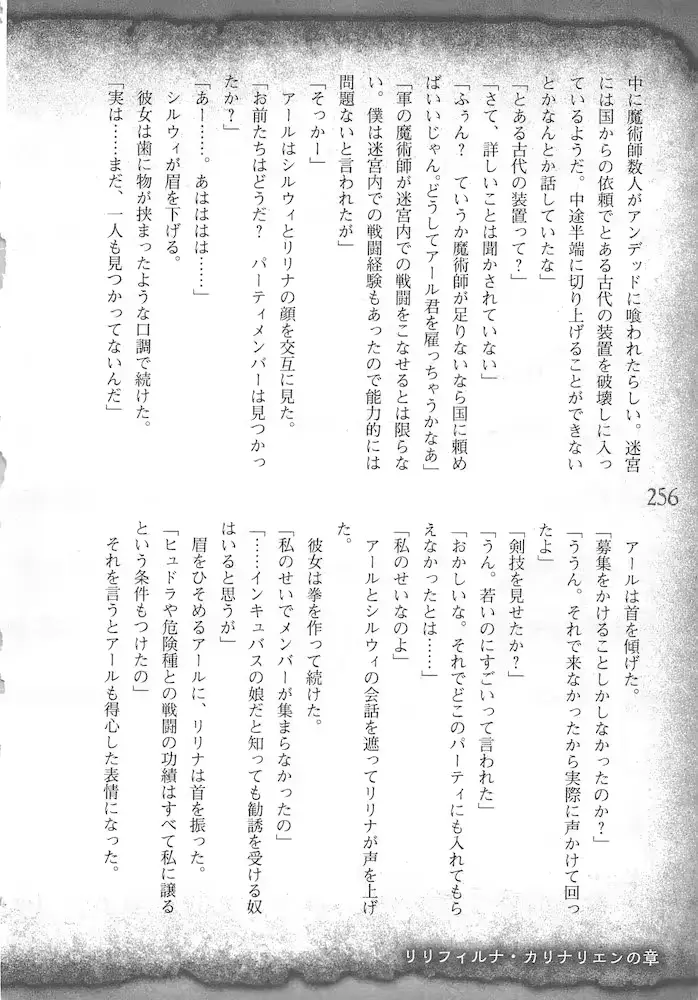 中に魔術師数人がアンデッドに喰われたらしい。迷宮
には国からの依頼でとある古代の装置を破壊しに入っ
ているようだ。中途半端に切り上げることができない
とかなんとか話していたな」
「とある古代の装置って？」
「さて、詳しいことは聞かされていない」
「ふぅん？　ていうか魔術師が足りないなら国に頼め
ばいいじゃん。どうしてアール君を雇っちゃうかなあ」
「軍の魔術師が迷宮内での戦闘をこなせるとは限らな
い。僕は迷宮内での戦闘経験もあったので能力的には
問題ないと言われたが」
「そっかー」
アールはシルウィとリリナの顔を交互に見た。
「お前たちはどうだ？　パーティメンバーは見つかっ
たか？」
「あー……。あはははは……」
シルウィが眉を下げる。
彼女は歯に物が挟まったような口調で続けた。
「実は……まだ、一人も見つかってないんだ」
256
アールは首を傾げた。
「募集をかけることしかしなかったのか？」
「ううん。それで来なかったから実際に声かけて回っ
たよ」
「剣技を見せたか？」
「うん。若いのにすごいって言われた」
「おかしいな。それでどこのパーティにも入れてもら
えなかったとは……」
「私のせいなのよ」
アールとシルウィの会話を遮ってリリナが声を上げ
た。
彼女は拳を作って続けた。
「私のせいでメンバーが集まらなかったの」
「……インキュバスの娘だと知っても勧誘を受ける奴
はいると思うが」
眉をひそめるアールに、リリナは首を振った。
「ヒュドラや危険種との戦闘の功績はすべて私に譲る
という条件もつけたの」
それを言うとアールも得心した表情になった。
リリフィルナ・カリナリエンの章